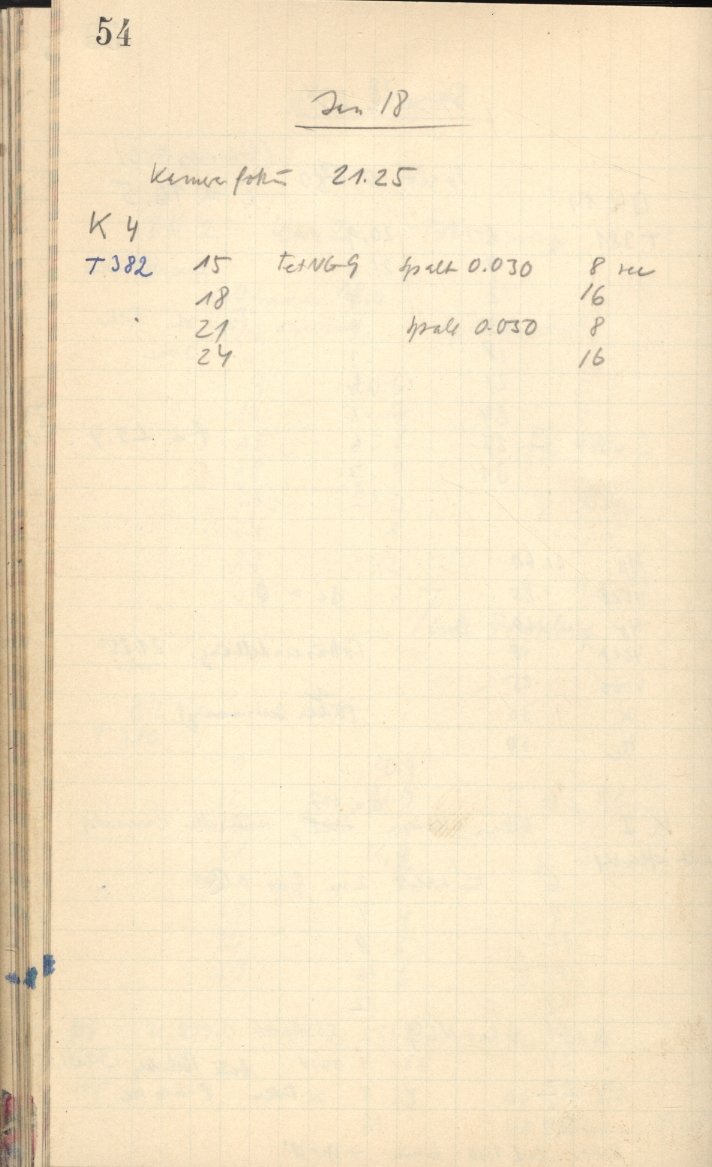 54
Jan 18
Kamerafokus 21.25
K 4
T 382 15 Spalt 0.030 8 sec
18 16
21 Spalt 0.050 8
24 16